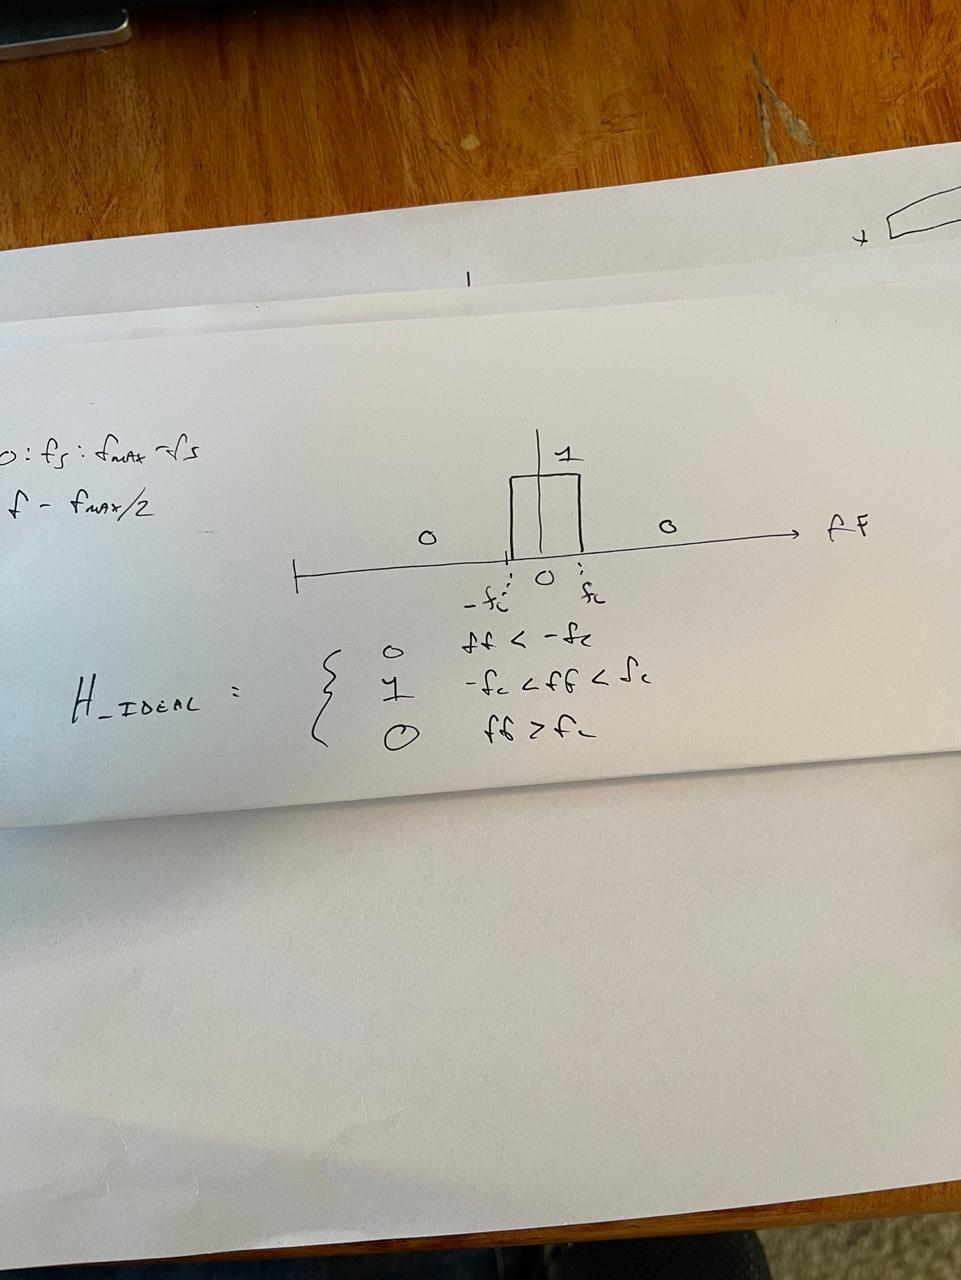 0:fs:fmax-fs
f - fmax/2
1
0 0 ff
-fc 0 fc
H_IDEAL = { 0 ff < -fc
1 -fc < ff < fc
0 ff > fc